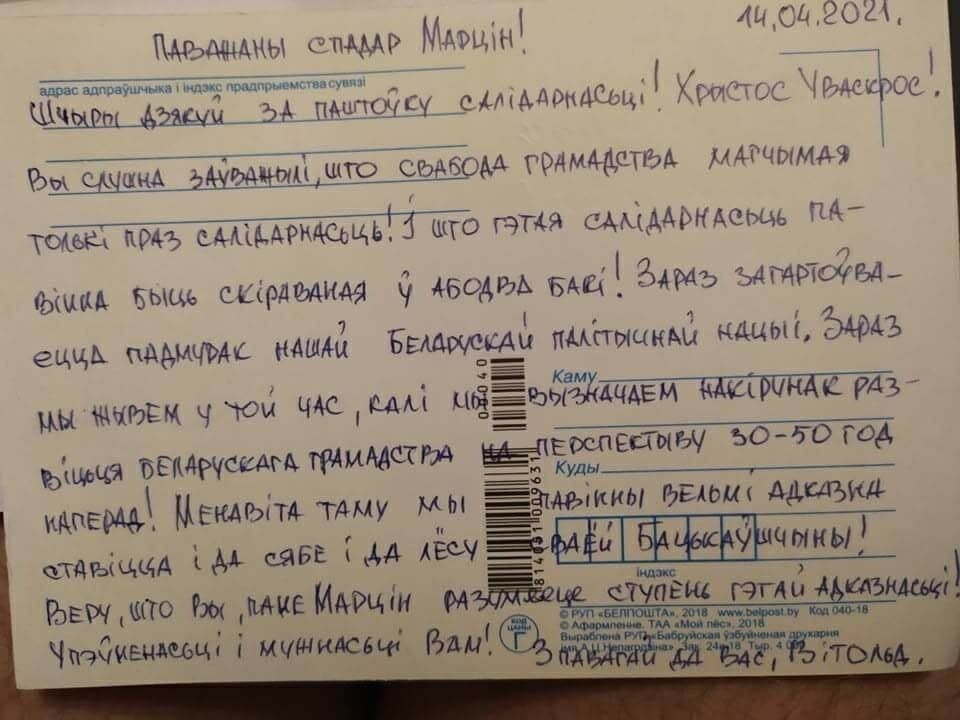 14.04.2021.
Паважаны спадар Марцін!
адрас адпраўшчыка і індэкс прадпрыемства сувязі
Шчыры дзякуй за паштоўку салідарнасьці! Хрыстос Уваскрос!
Вы слушна заўважылі, што свабода грамадства магчымая
толькі праз салідарнасьць! І што гэтая салідарнасьць па-
вінна быць скіраваная ў абодва бакі! Зараз загартоўва-
ецца падмурак нашай Беларускай палітычнай нацыі. Зараз
Каму
мы жывем у той час, калі мы вызначаем накірунак раз-
віцьця беларускага грамадства на перспектыву 30-50 год
Куды
наперад! Менавіта таму мы павінны вельмі адказна
ставіцца і да сябе і да лёсу сваёй Бацькаўшчыны!
індэкс
Веру, што Вы, пане Марцін разумееце ступень гэтай адказнасьці!
© РУП «БЕЛПОШТА», 2018 www.belpost.by Код 040-18
© Афармленне. ТАА «Мой лёс», 2018
Выраблена РУП «Бабруйская ўзбуйненая друкарня
імя А.Ц.Непагодзіна» Зак. 24 -18 Тыр. 4
КОД ЦАНЫ Г
Упэўненасьці і мужнасьці Вам! З павагай да Вас, Вітольд.
04040
814031 009631